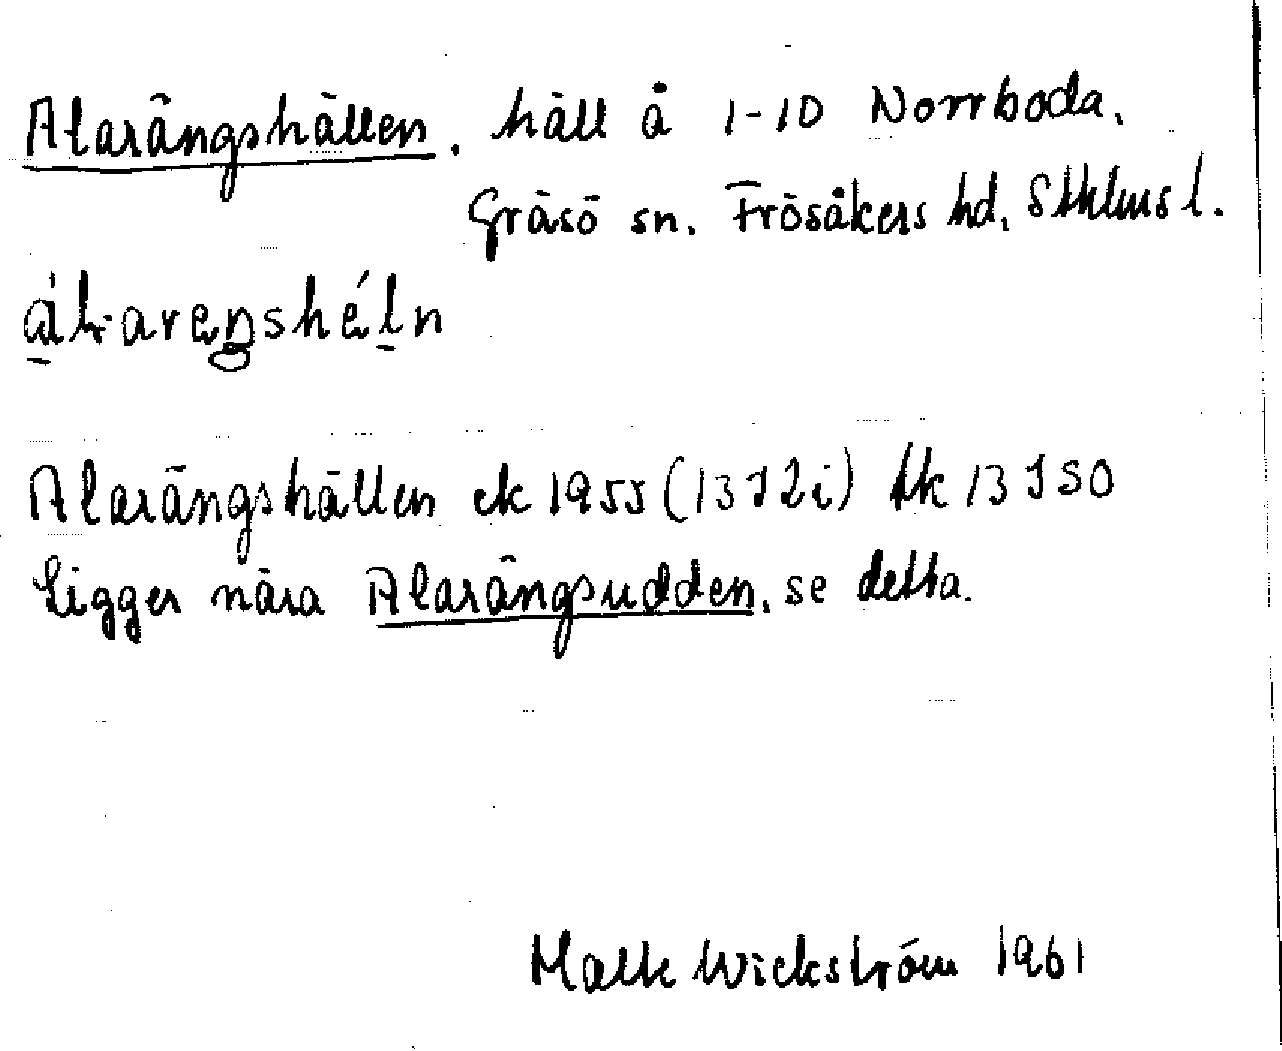 Alarängshällen. häll å 1-10 Norrboda.
Gräsö sn. Frösåkers hd. Sthlms l.
Alarängshällen ek 1955 (13I2i) fk 13ISO
Ligger nära Alarängsudden, se detta.
Malte Wickström 1961